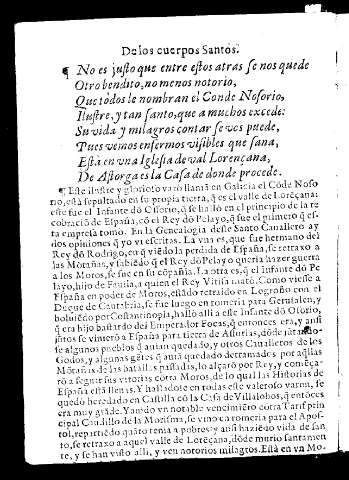 De los cuerpos Santos.
¶ No es justo que entre estos atras se nos quede
Otro bendito, no menos notorio,
Que todos le nombran el Conde Nosorio,
Ilustre, y tan santo, que a muchos excede:
Su vida y milagros contar se vos puede,
Pues vemos enfermos visibles que sana,
Está en vna Iglesia de val Lorençana,
De Astorga es la Casa de donde procede.
¶ Este ilustre y glorioso varõ llamã en Galicia el Cõde Noso
rio, está sepultado en su propia tierra, q̃ es el valle de Lorẽçana:
este fue el Infante dõ Ossorio, q̃ se halló en el principio de la re
cobraciõ de España, cõ el Rey dõ Pelayo, q̃ fue el primero q̃ es-
ta empresa tomó. En la Genealogia deste Santo Cauallero ay
dos opiniones q̃ yo vi escritas. La vna es, que fue hermano del
Rey dõ Rodrigo, cu q̃ viẽdo la perdida de España, se retraxo a
las Mõtañas, y sabiẽdo q̃ el Rey dõ Pelayo queria hazer guerra
a los Moros, se fue en su cõpañia. La otra es, q̃ el Infante dõ Pe
layo, hijo de Fauila, a quien el Rey Vitiza mató. Como viesse a
España en poder de Moros, estãdo retraido en Logroño con el
Duque de Cantabria, se fue luego en romeria para Gerusalen, y
boluiẽdo por Costantinopla, halló alli a este Infante dõ Ossorio,
q̃ era hijo bastardo del Emperador Focas, q̃ entonces era, y assi
jũtos se vinierõ a España para tierra de Asturias, dõde jũtãdo-
se algunos pueblos q̃ auian quedado, y otros Caualleros de los
Godos, y algunas gẽtes q̃ auiã quedado derramados por aq̃llas
Mõtañas de las batallas passadas, lo alçarõ por Rey, y comença-
rõ a seguir sus vitorias cõtra Moros, de lo qual las Historias de
España estã llenas. Y hallãdose en todas este valeroso varon, se
quedó heredado en Castilla cõ la Casa de Villalobos, q̃ entõces
era muy grãde. Y auido vn notable vencimiẽto cõtra Tarif prin
cipal Caudillo de la Morisma, se vino en romeria para el Apos-
tol, repartiẽdo quãto tenia a pobres: y assi haziẽdo vida de san
to, se retraxo a aquel valle de Lorẽçana, dõde murio santamen
te, y se han visto alli, y ven notorios milagros. Está en vn Mo-